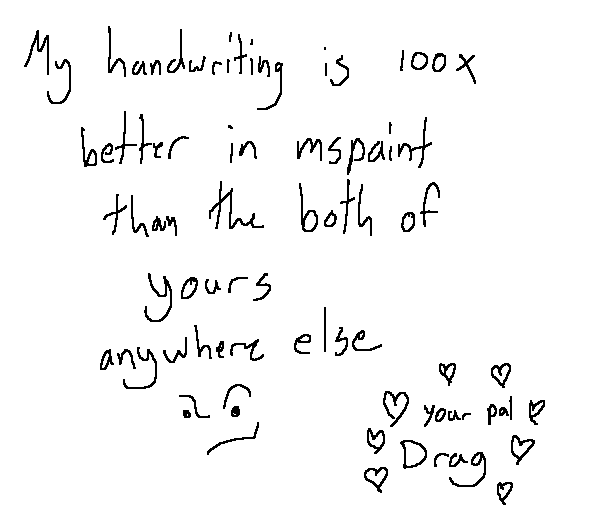 My handwriting is 100x
better in mspaint
than the both of
yours
anywhere else
your pal
Drag